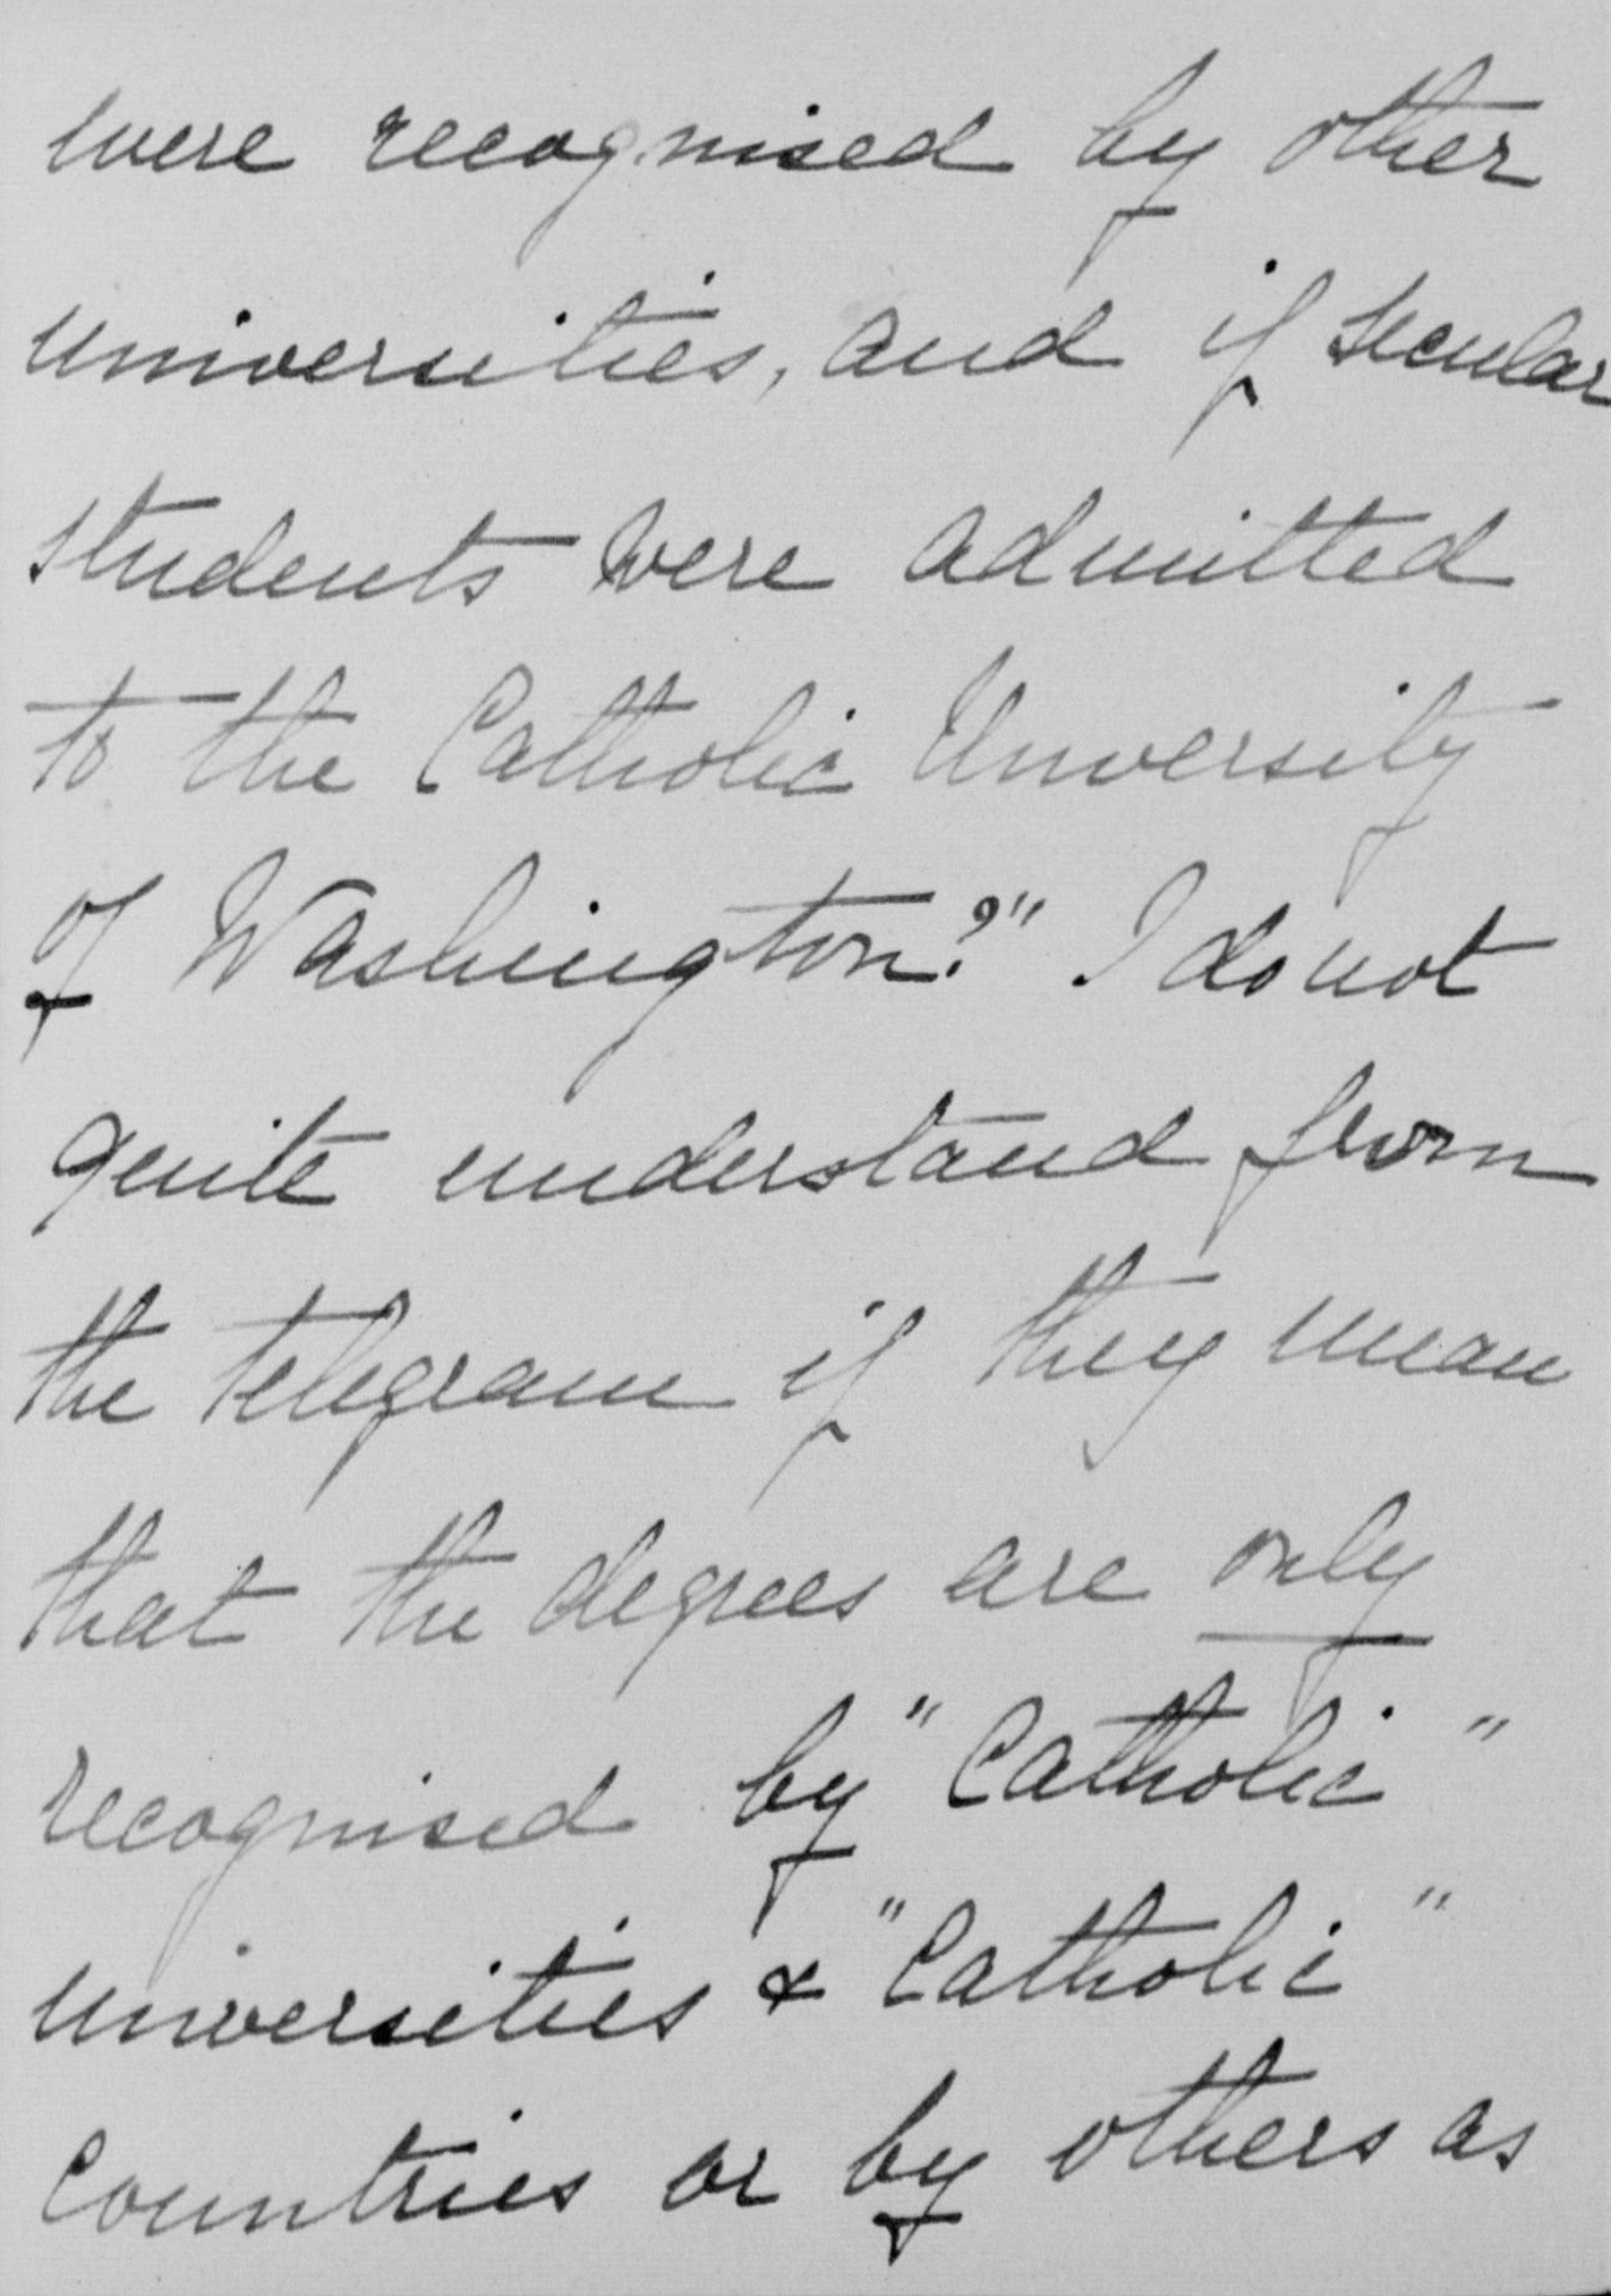 were recognised by other
universities, and if secular
students were admitted
to the Catholic University
of Washington?" I do not
quite understand from
the telegram if they mean
that the degrees are only
recognised by "Catholic"
universities & "Catholic"
countries or by others as